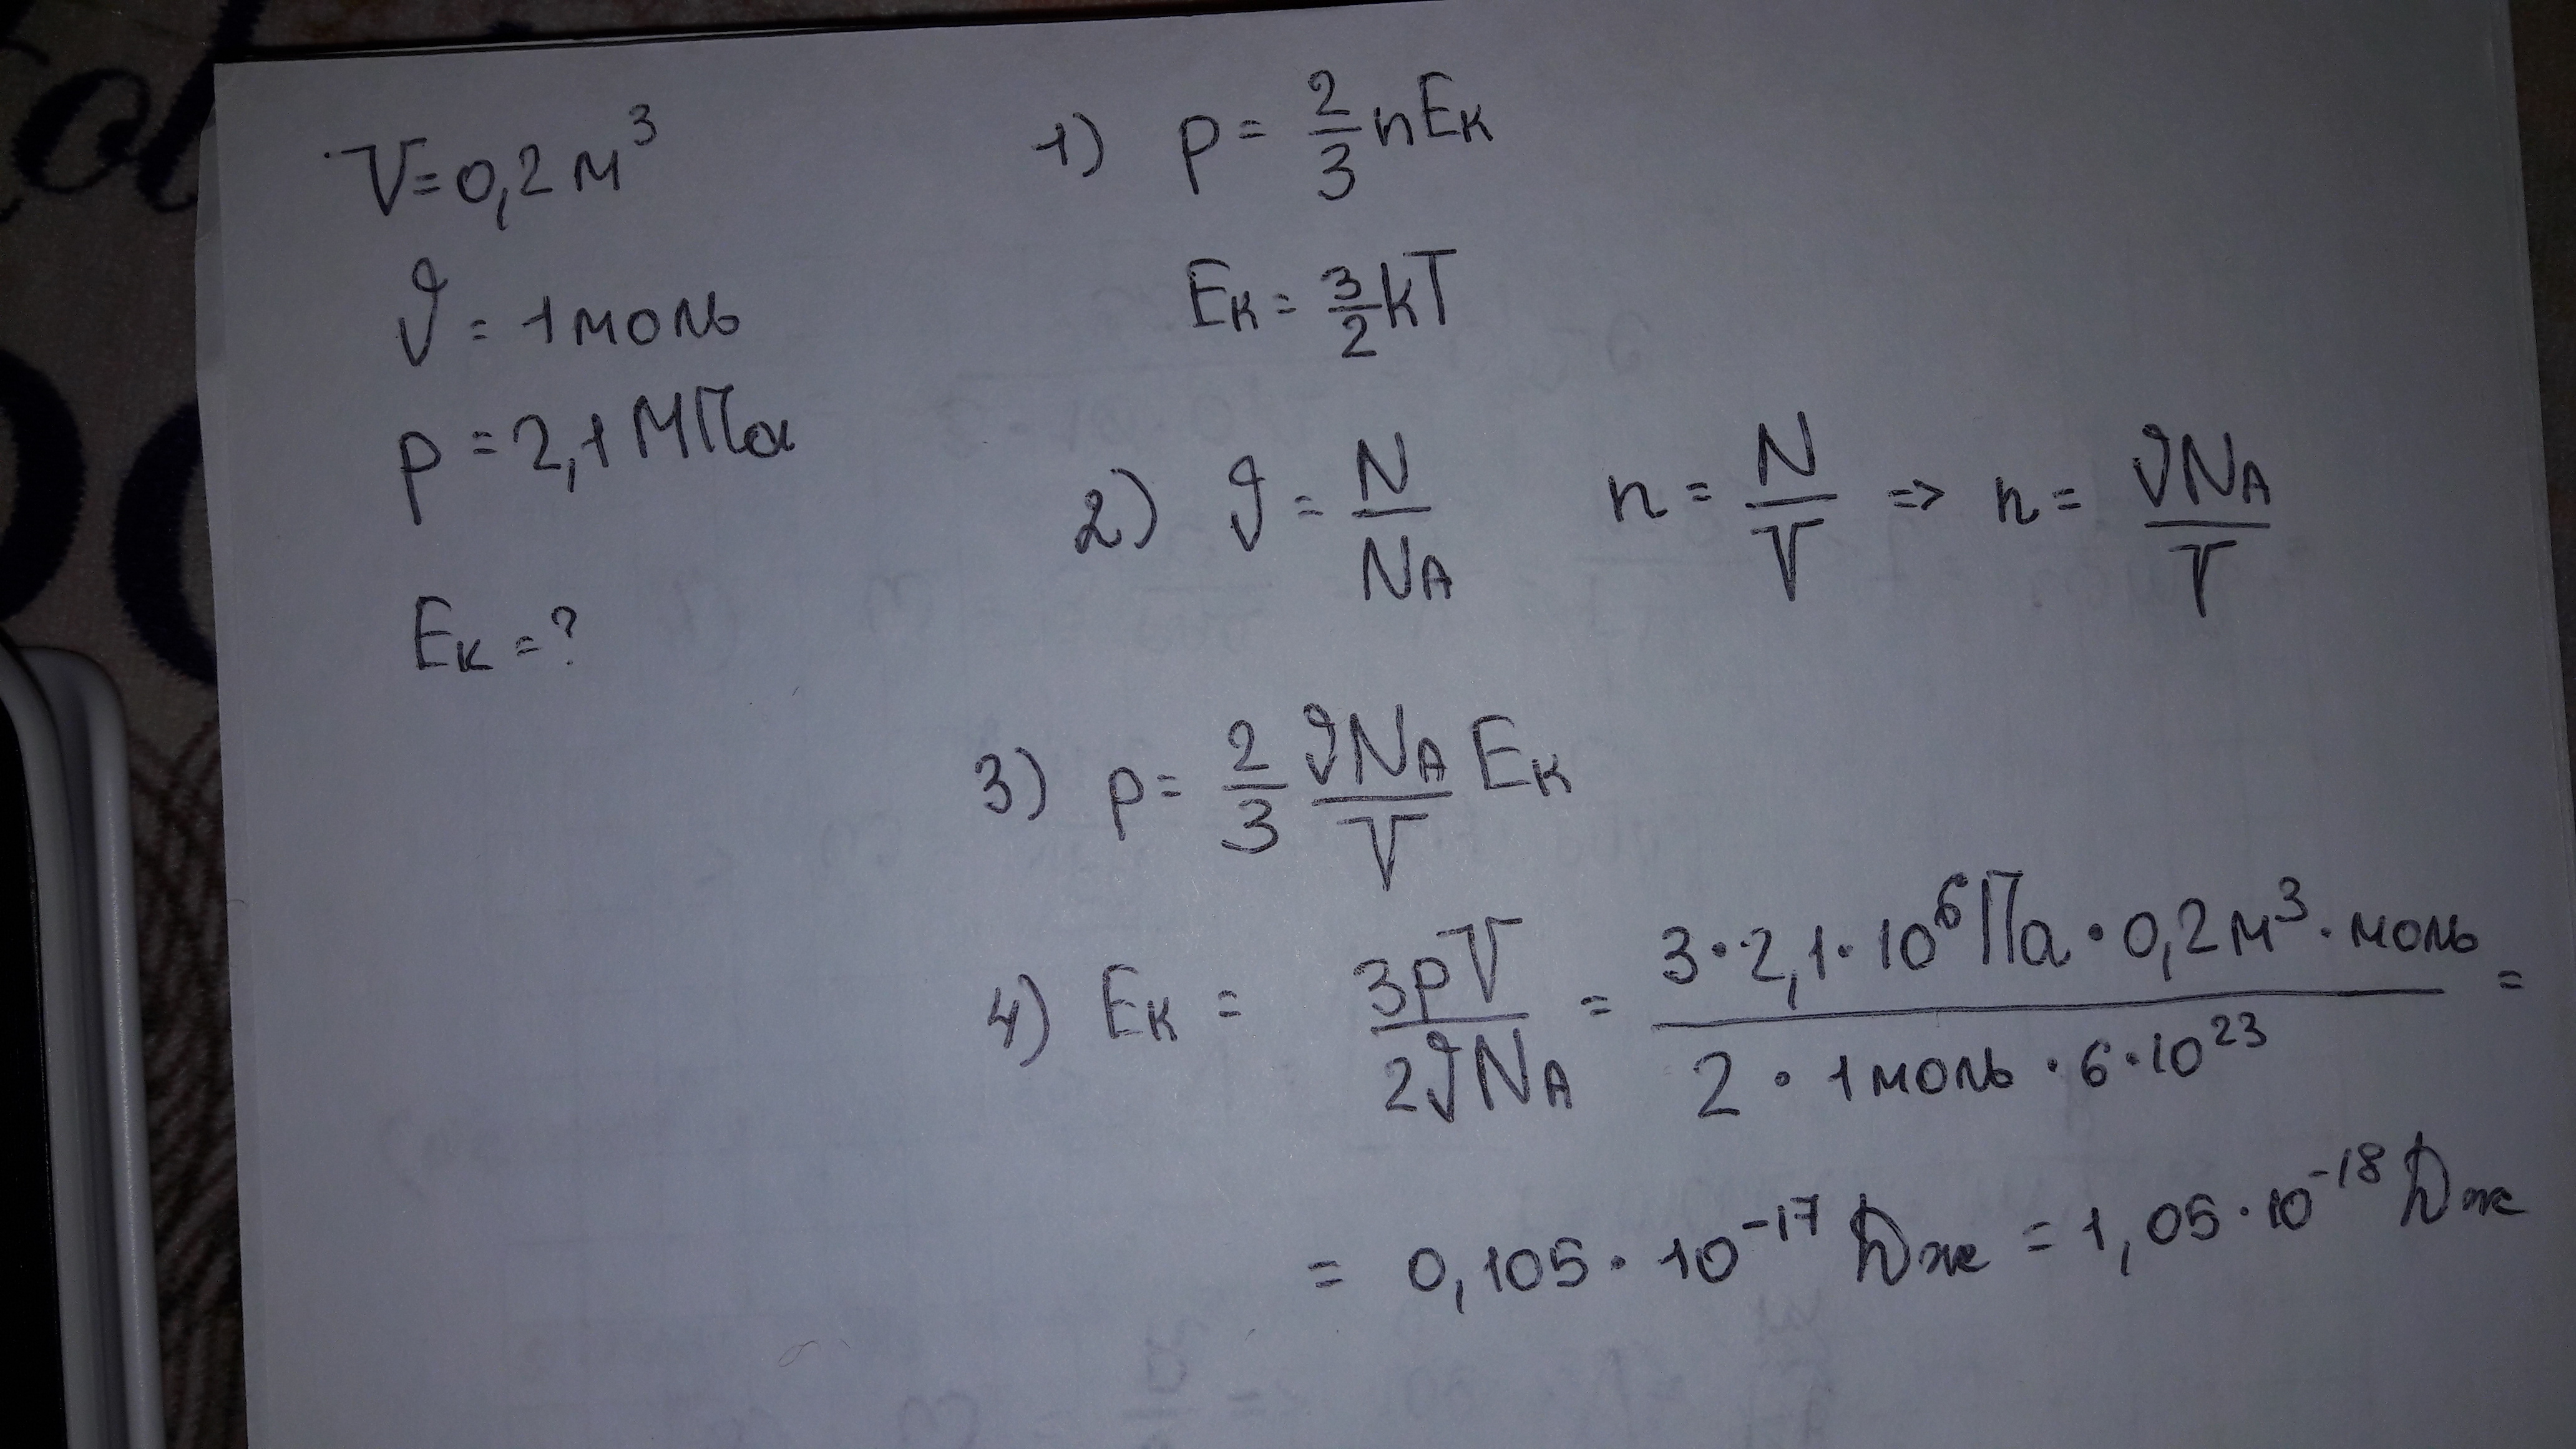 V = 0,2 м³
ϑ = 1 моль
p = 2,1 МПа
Eк = ?
1) p = 2/3 nEк
Eк = 3/2 kT
2) ϑ = N/NA n = N/V => n = ϑNA/V
3) p = 2/3 ϑNA/V Eк
4) Eк = 3pV/2ϑNA = 3·2,1·10⁶Па·0,2м³·моль / 2·1моль·6·10²³ =
= 0,105·10⁻¹⁷ Дж = 1,05·10⁻¹⁸ Дж